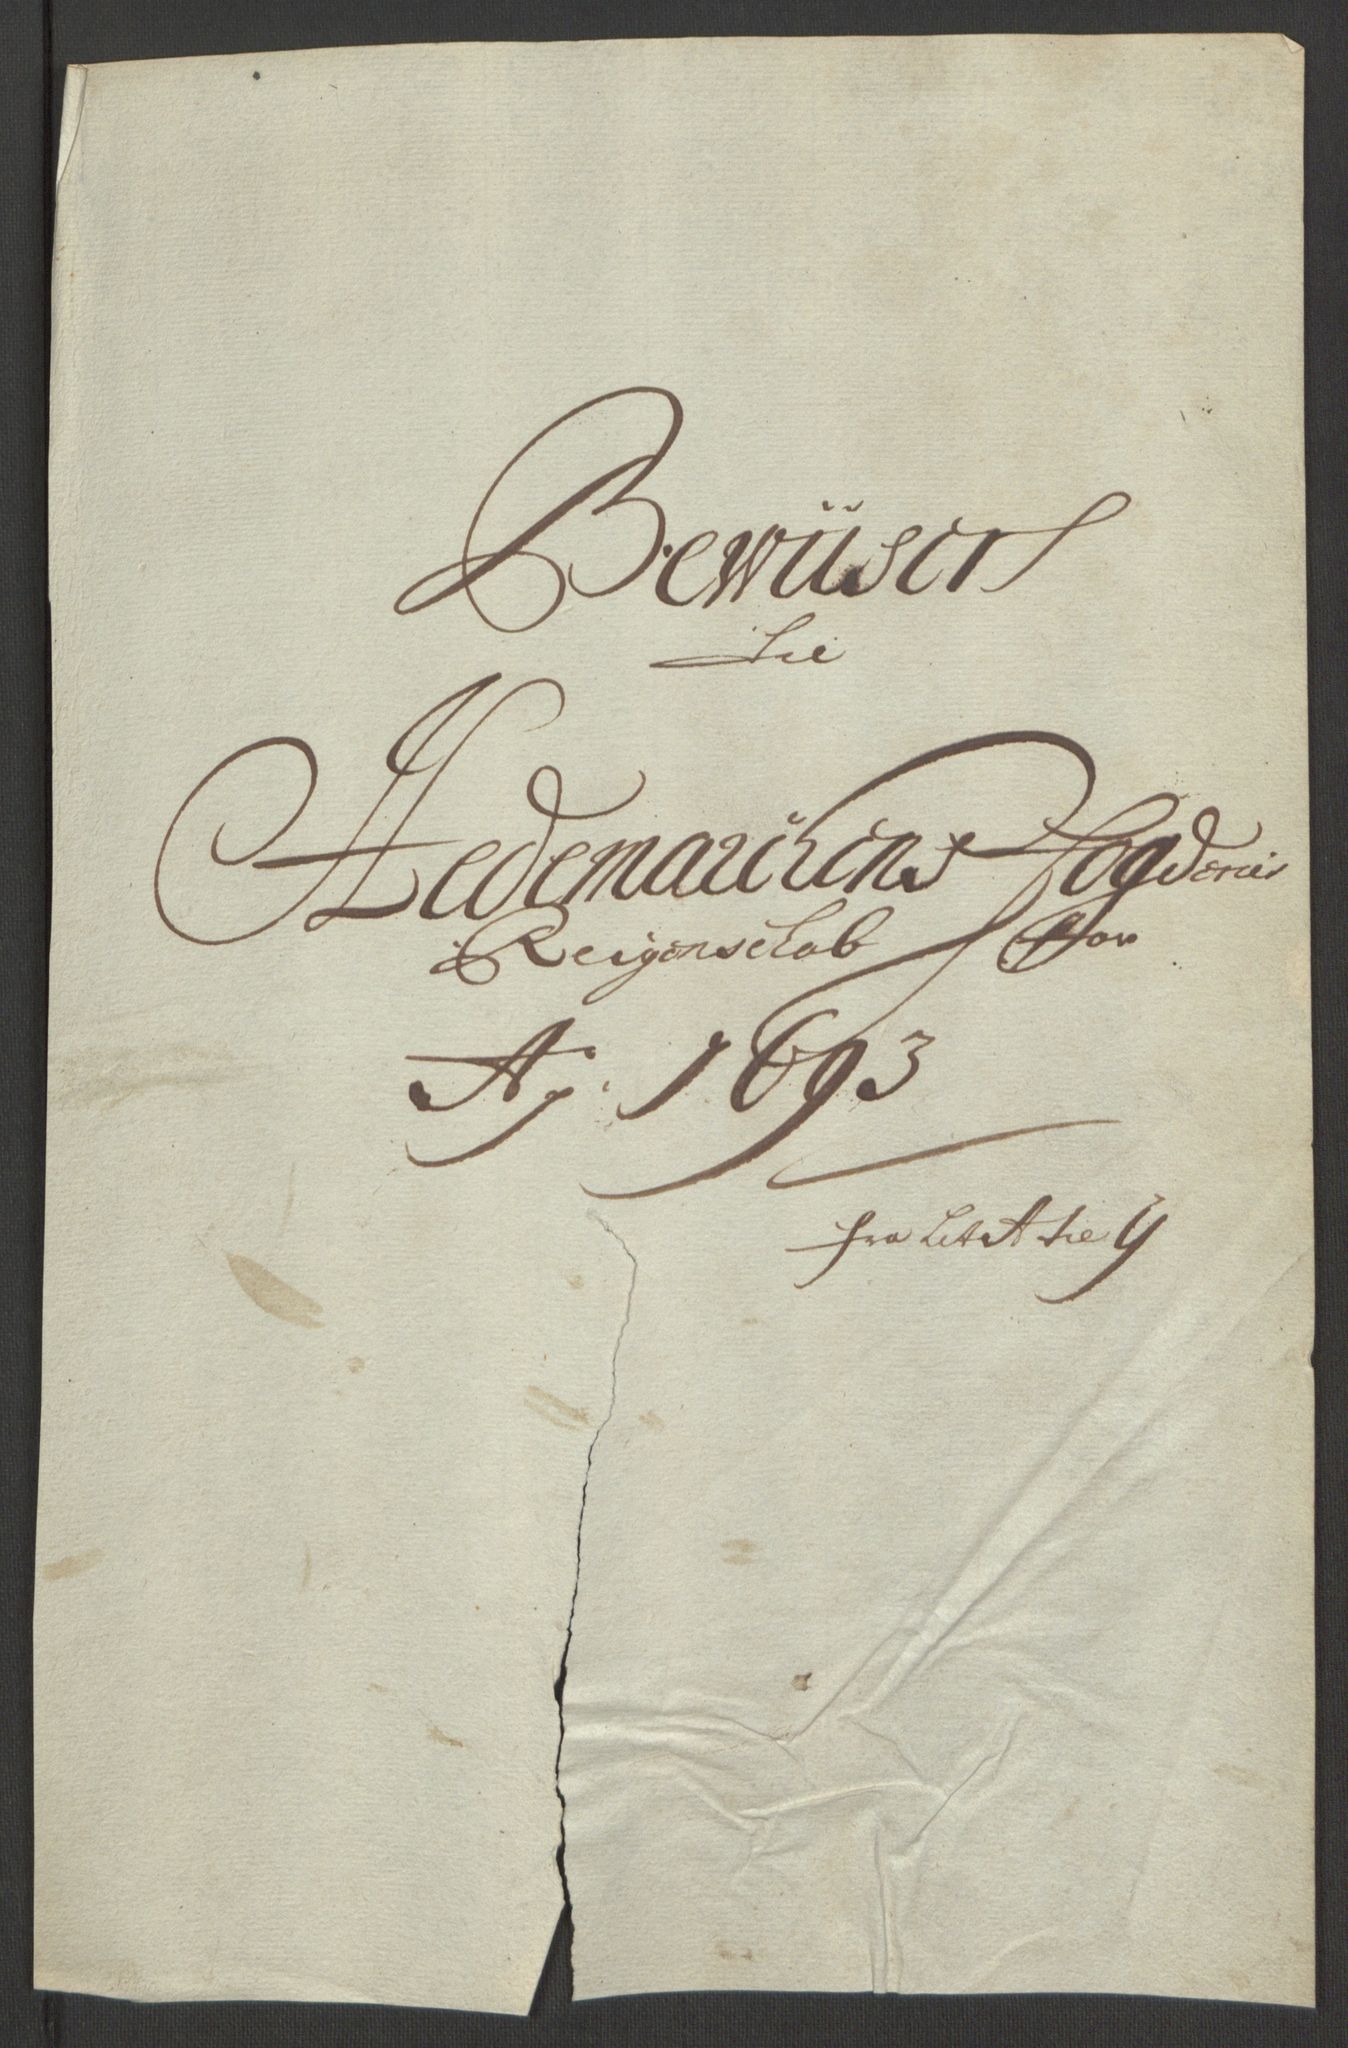 Bewüser
til
Hedemarckens fogderies
Reigenschab for
Aō. 1693
fra Lit A til Y